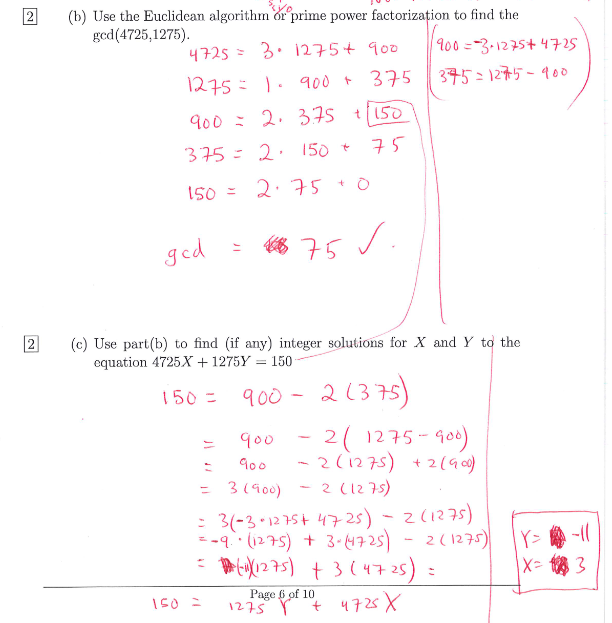 2 (b) Use the Euclidean algorithm or prime power factorization to find the
gcd(4725,1275).
4725 = 3 · 1275 + 900
1275 = 1 · 900 + 375
900 = 2 · 375 + 150
375 = 2 · 150 + 75
150 = 2 · 75 + 0
gcd = 75 ✓.
900 = -3·1275 + 4725
375 = 1275 - 900
2 (c) Use part(b) to find (if any) integer solutions for X and Y to the
equation 4725X + 1275Y = 150
150 = 900 - 2(375)
= 900 - 2(1275-900)
= 900 - 2(1275) + 2(900)
= 3(900) - 2(1275)
= 3(-3·1275 + 4725) - 2(1275)
= -9·(1275) + 3·(4725) - 2(1275)
= (-11)(1275) + 3(4725) =
Y = -11
X = 3
Page 6 of 10
150 = 1275 Y + 4725 X